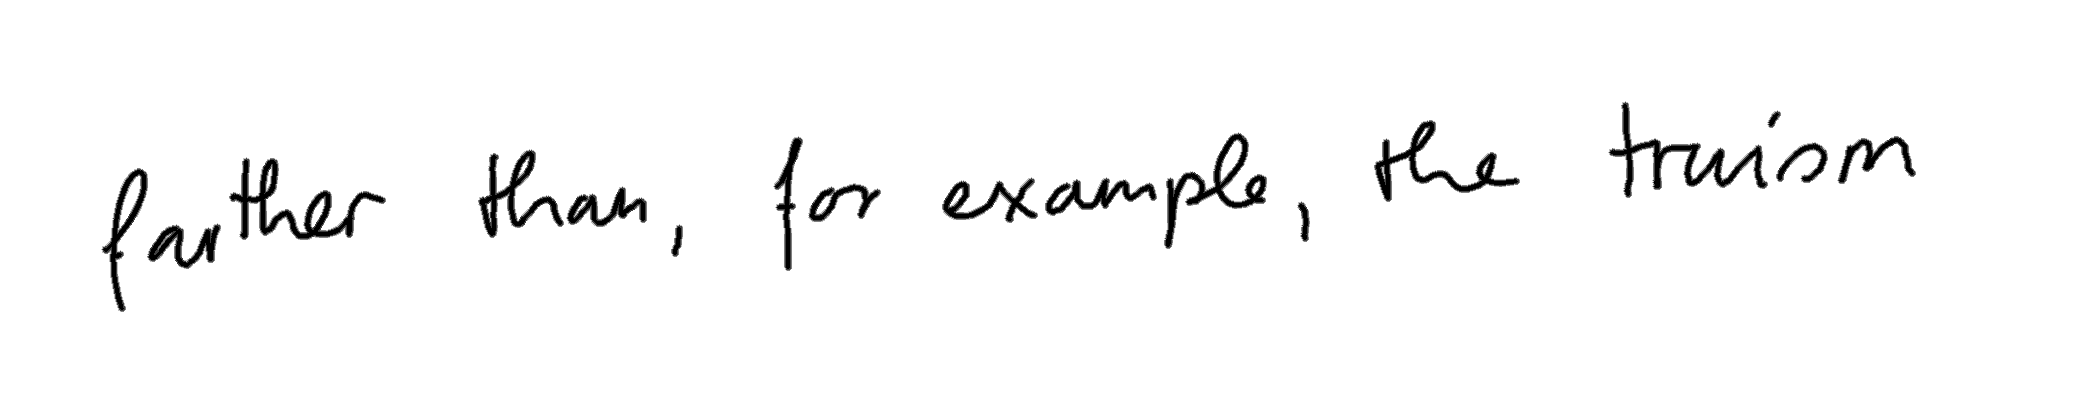 farther than, for example, the truism